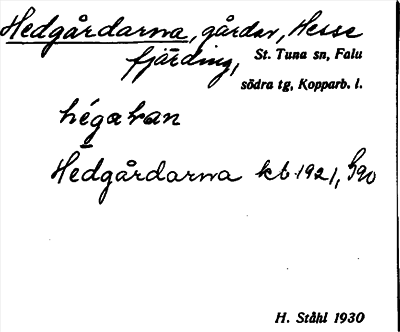 Hedgårdarna, gårdar, Hesse
fjärding, St. Tuna sn, Falu
södra tg, Kopparb. l.
Hedgårdarna kb 1921, S90
H. Ståhl 1930